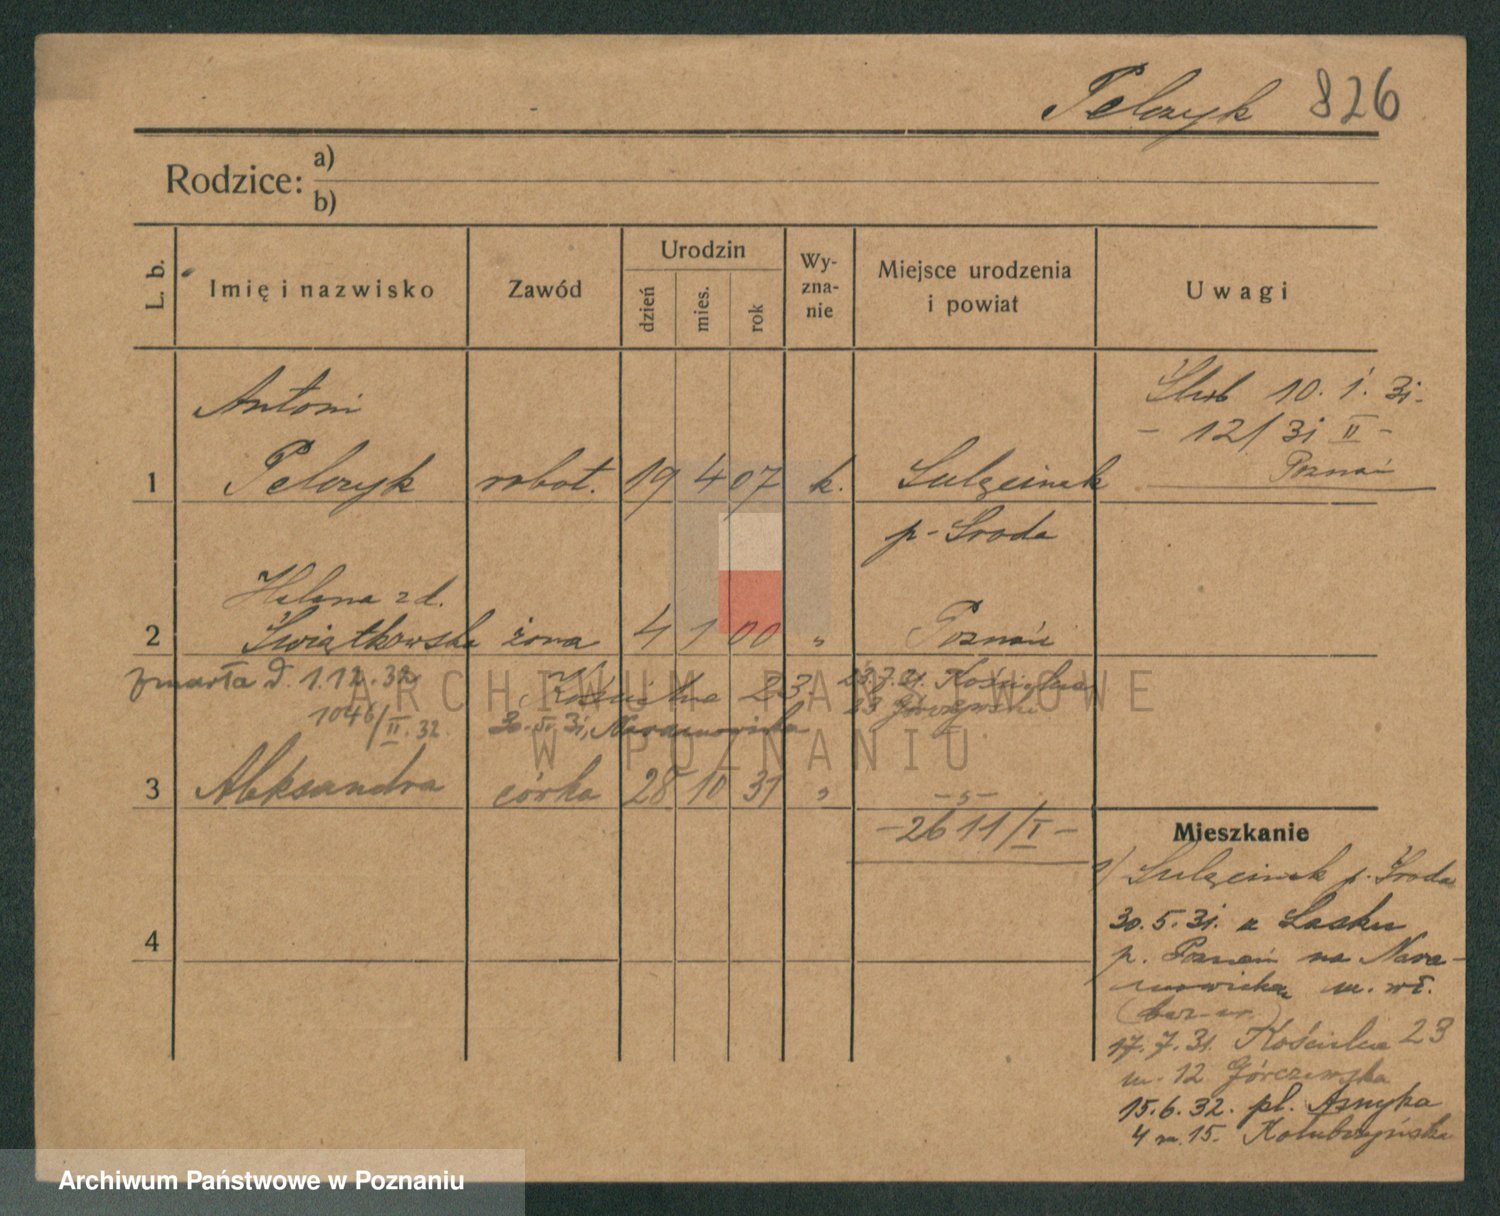 Pelczyk 826
Rodzice: a)
b)
L. b.
Imię i nazwisko
Zawód
Urodzin
dzień
mies.
rok
Wy-
zna-
nie
Miejsce urodzenia
i powiat
Uwagi
Antoni
1 Pelczyk robot. 19 4 07 k. Sulęcinek
p. Środa
Ślub 10. 1. 31.
- 12/31 II -
Poznań
Helena z d.
2 Świątkowska żona 4 1 00 „ Poznań
zmarła d. 1.12.32
1046/II. 32.
Kościelna 23.
30. 5. 31, Naramowicka
23.7.31. Kościelna
23 Górczewski
3 Aleksandra córka 28 10 31 „ -„-
- 2611/I -
4
Mieszkanie
1) Sulęcinek p. Środa
30.5.31. z Lasku
p. Poznań na Nara-
mowicka m. wł.
17.7.31. Kościelna 23
m. 12 Górczewska
15.6.32. pl. Asnyka
4 m. 15.
ARCHIWUM PAŃSTWOWE
W POZNANIU
Archiwum Państwowe w Poznaniu